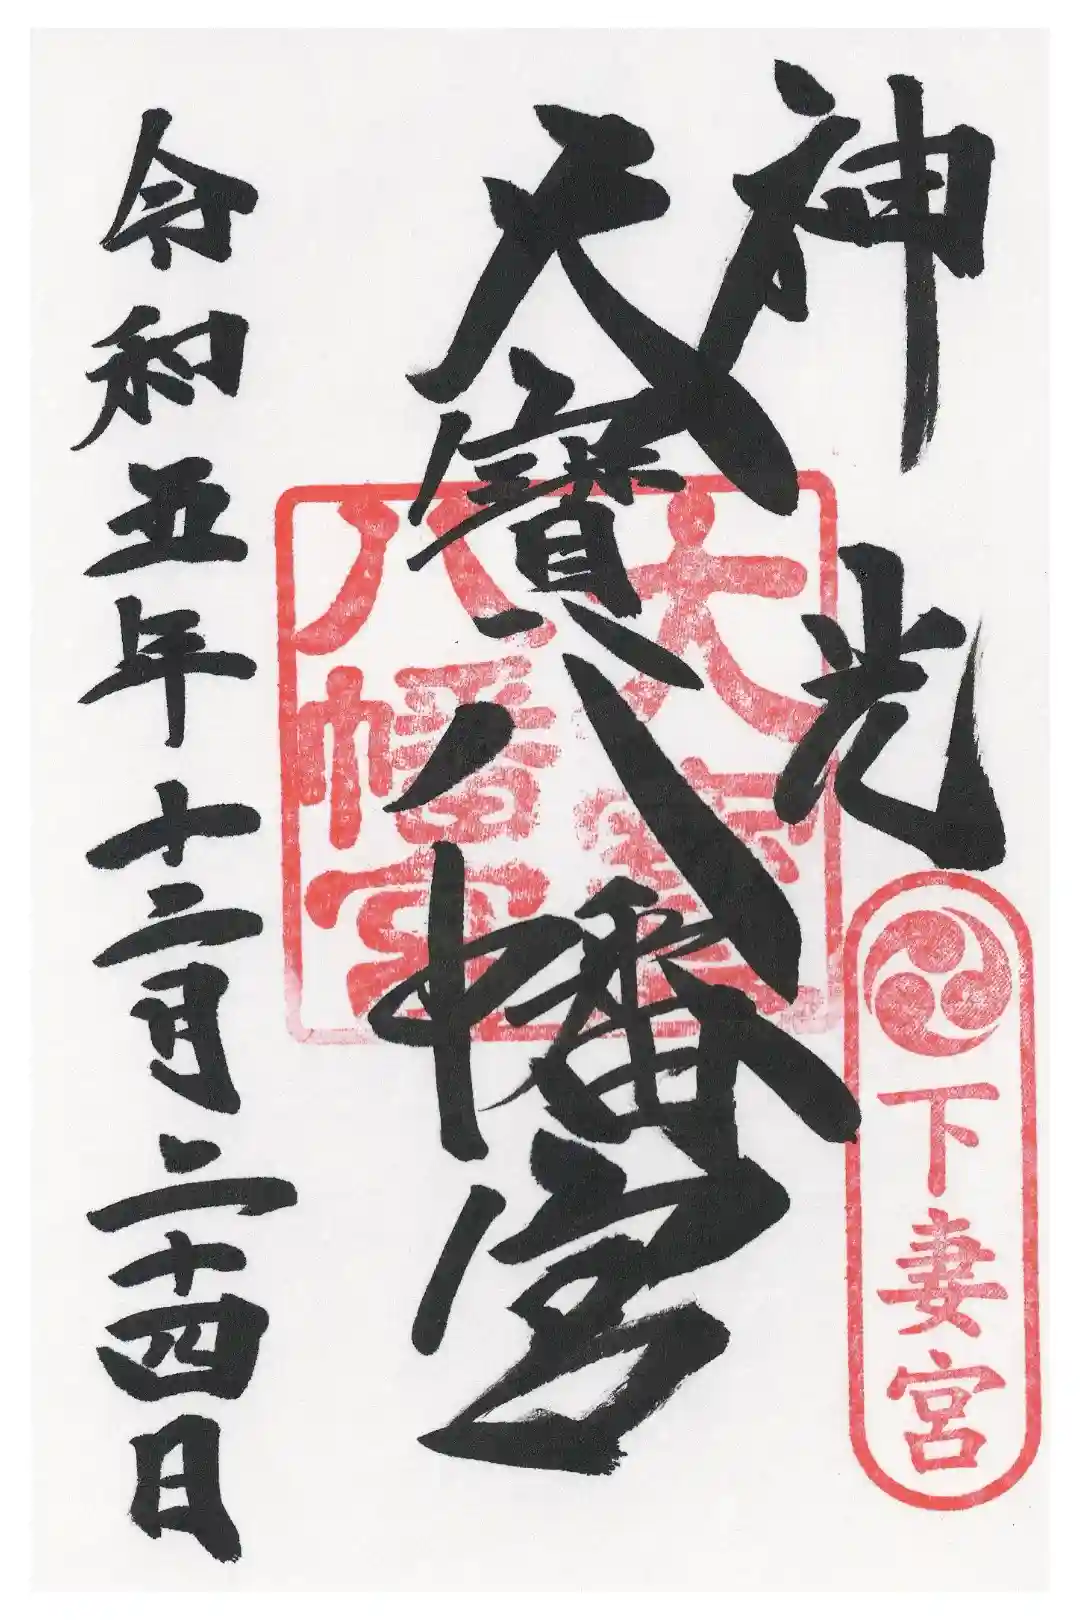 神光
下妻宮
大寶八幡宮
大寶
八幡宮
令和五年十二月二十四日